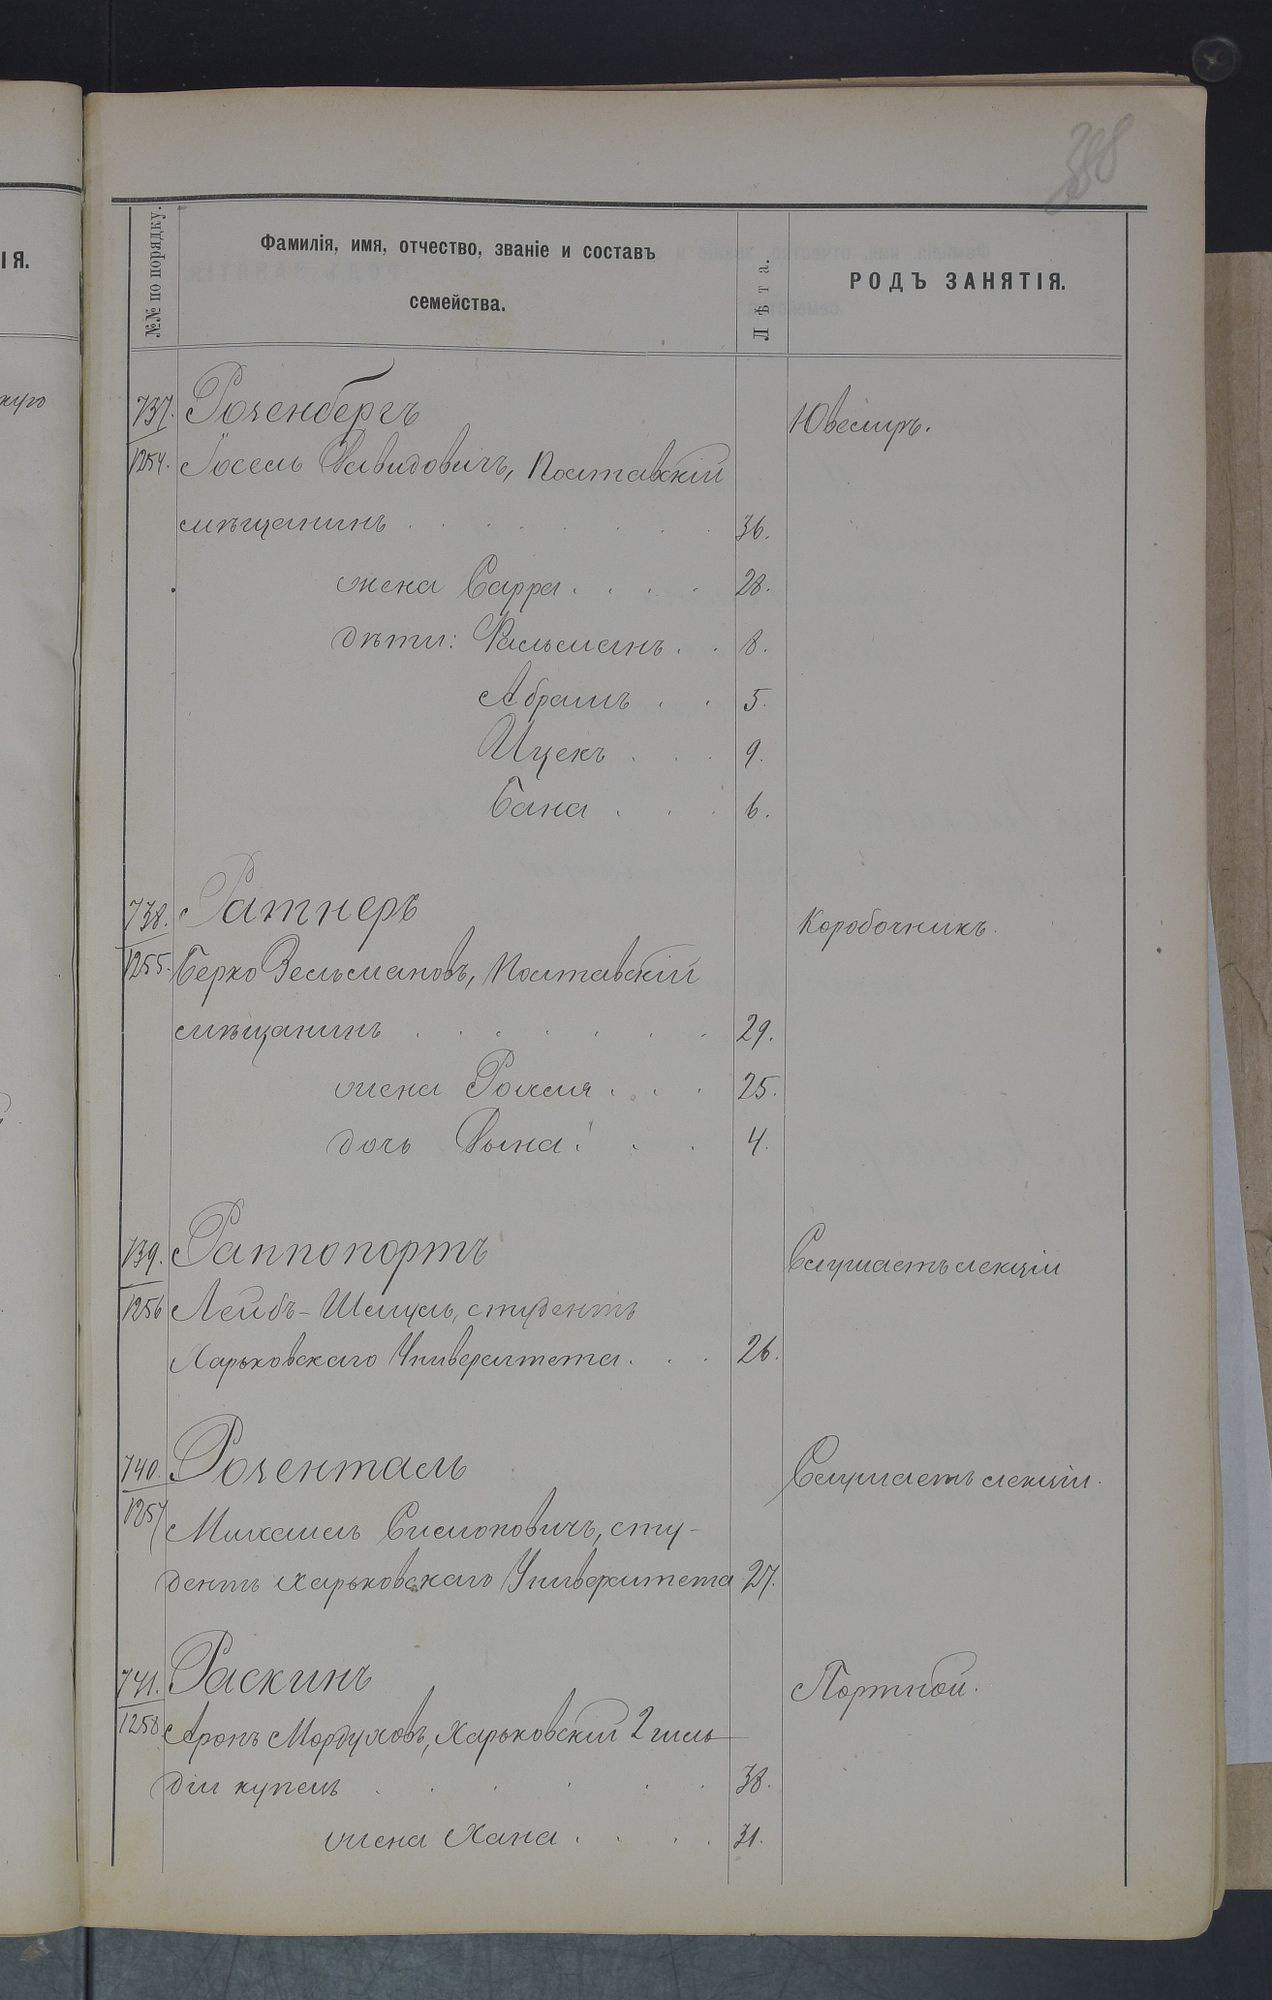 388
ІЯ.
№№ по порядку.
Фамилія, имя, отчество, званіе и составъ
семейства.
Лѣта.
РОДЪ ЗАНЯТІЯ.
737. Розенбергъ Ювелиръ.
1254. Іосель Давидовичъ, Полтавскій
мѣщанинъ 36.
жена Сарра 28.
дѣти: Кальманъ 8.
Абрамъ 5.
Ицекъ 9.
Бана 6.
738. Ратнеръ Коробочникъ.
1255. Берко Зельмановъ, Полтавскій
мѣщанинъ 29.
жена Рохля 25.
дочь Дына 4.
739. Раппопортъ Слушаетъ лекціи
1256 Лейбъ-Шмуль, студентъ
Харьковскаго Университета 26.
740. Розенталь Слушаетъ лекціи.
1257 Михаилъ Симоновичъ, сту-
дентъ Харьковскаго Университета 27.
741. Раскинъ Портной.
1258 Аронъ Мордуховъ, Харьковскій 2 гиль
діи купецъ 38.
жена Хана 31.